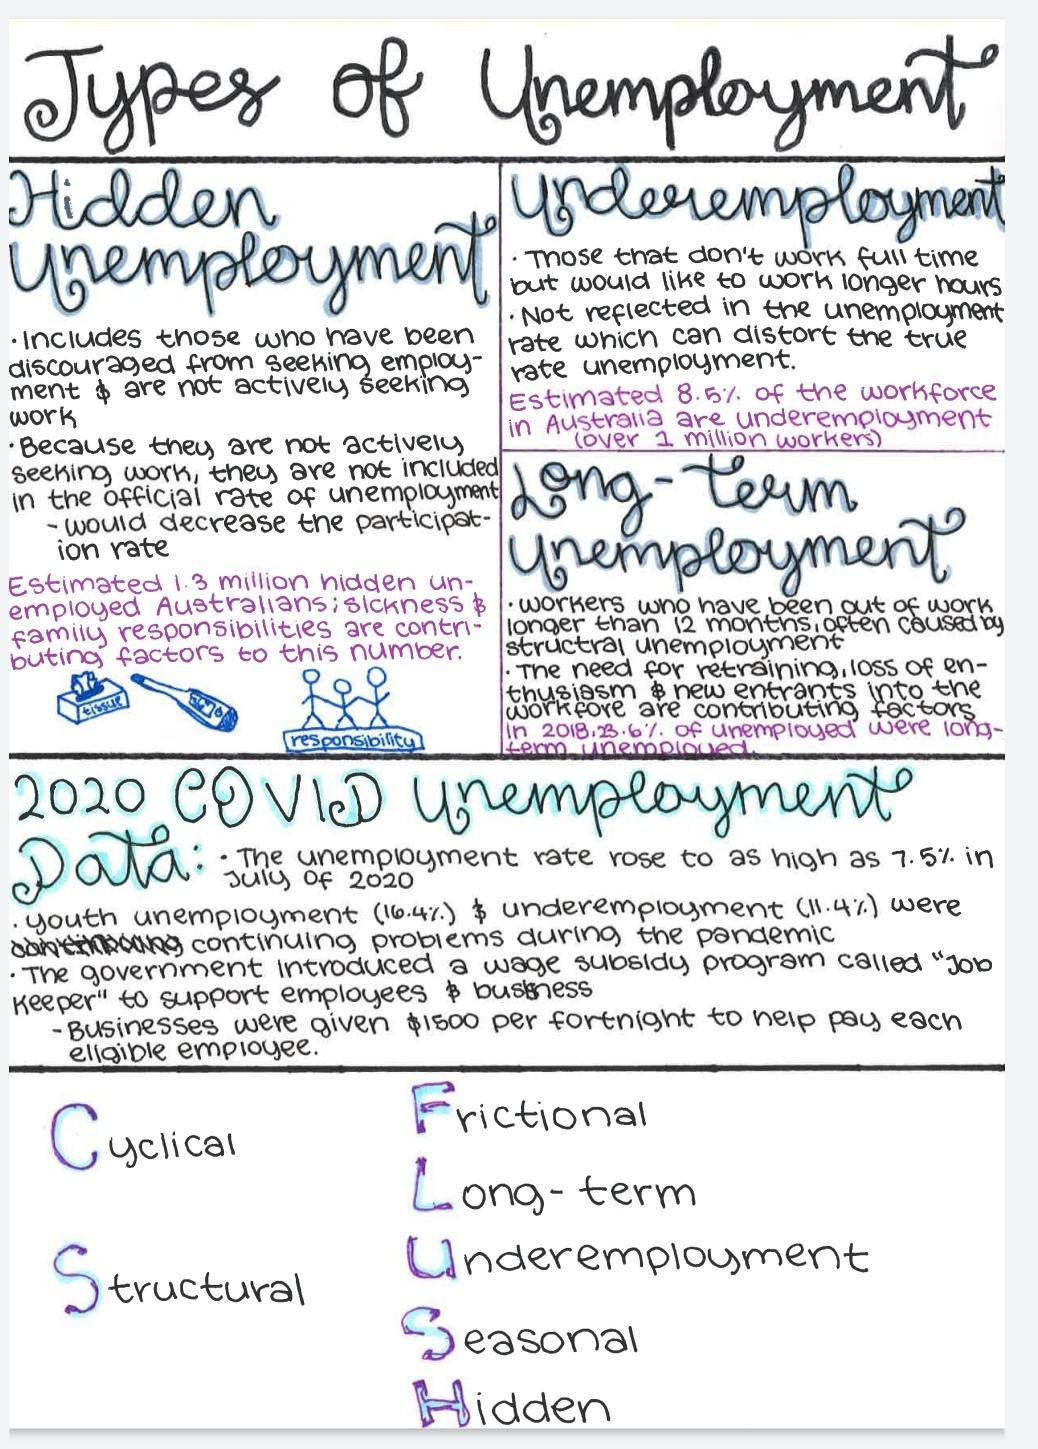 Types of Unemployment
Hidden
Unemployment
· Includes those who have been
discouraged from seeking employ-
ment & are not actively seeking
work
· Because they are not actively
seeking work, they are not included
in the official rate of unemployment
- would decrease the participat-
ion rate
Estimated 1.3 million hidden un-
employed Australians; sickness &
family responsibilities are contri-
buting factors to this number.
tissue
36°C
responsibility
Underemployment
· Those that don't work full time
but would like to work longer hours
· Not reflected in the unemployment
rate which can distort the true
rate unemployment.
Estimated 8.5% of the workforce
in Australia are underemployment
(over 1 million workers)
Long-term
Unemployment
· workers who have been out of work
longer than 12 months, often caused by
structral unemployment
· The need for retraining, loss of en-
thusiasm & new entrants into the
workfore are contributing factors
in 2018, 23.6% of unemployed were long-
term unemployed.
2020 COVID Unemployment
Data: · The unemployment rate rose to as high as 7.5% in
July of 2020
· Youth unemployment (16.4%) & underemployment (11.4%) were
continuing problems during the pandemic
· The government introduced a wage subsidy program called "Job
Keeper" to support employees & business
- Businesses were given $1500 per fortnight to help pay each
eligible employee.
Cyclical
Structural
Frictional
Long-term
Underemployment
Seasonal
Hidden